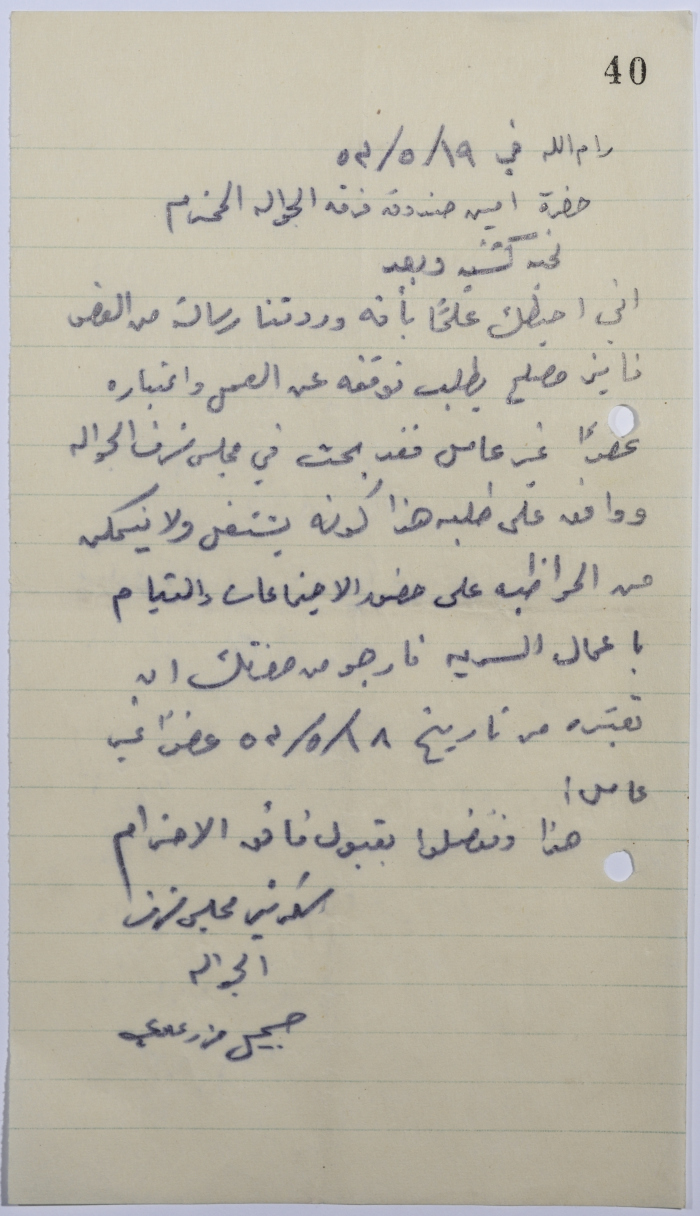 40
رام الله في ١٩/٥/٥٣
حضرة امين صندوق فرقة الجواله المحترم
تحيه كشفيه وبعد
اني احيطك علمًا بأنه وردتنا رسالة من العضو
فايز مصلح يطلب توقفه عن العمل واعتباره
عضوًا غير عامل فقد بحث في مجلس شرف الجواله
ووافق على طلبه هذا كونه يشتغل ولا يتمكن
من المواظبه على حضور الاجتماعات والقيام
باعمال السريه فارجو من حضرتك ان
تعتبره من تاريخ ١٨/٥/٥٣ عضوًا غير
عامل
هذا وتفضلوا بقبول فائق الاحترام
سكرتير مجلس شرف
الجواله